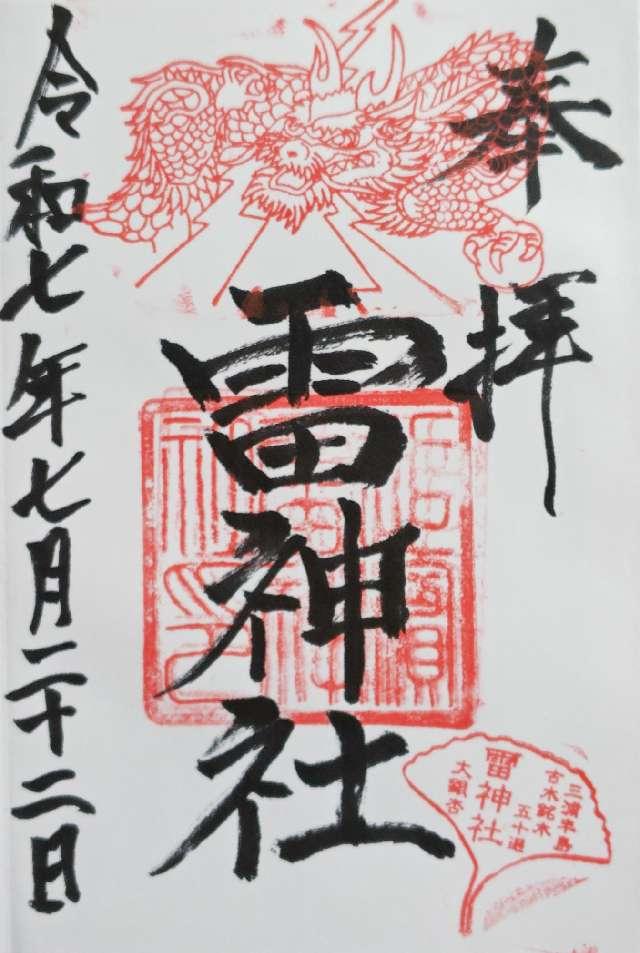 奉拝
雷神社
令和七年七月二十二日
三浦半島
古木銘木
五十選
雷神社
大銀杏